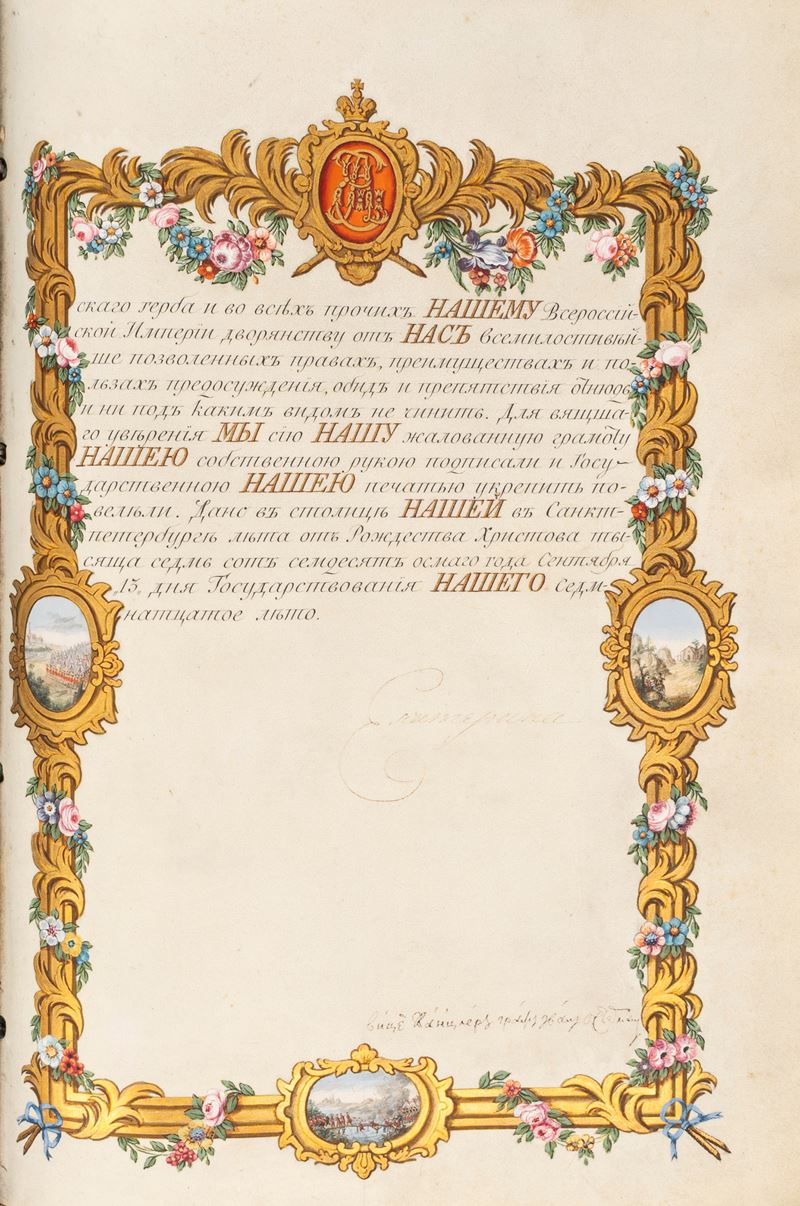 скаго герба и во всѣхъ прочихъ НАШЕМУ Всероссій-
ской Имперіи дворянству отъ НАСЪ всемилостивѣй-
ше позволенныхъ правахъ, преимуществахъ и по-
льзахъ предосужденія, обидъ и препятствія отнюдь
и ни подъ каким видомъ не чинить. Для вящша-
го увѣренія МЫ сію НАШУ жалованную грамоту
НАШЕЮ собственною рукою подписали и Госу-
дарственною НАШЕЮ печатью укрепить по-
велѣли. Данс въ столицѣ НАШЕЙ въ Санкт-
петербургѣ лѣта отъ Рождества Христова ты-
сяща седмь сотъ семдесятъ осмаго года Сентября
„13„ дня Государствованія НАШЕГО Седм-
натцатое лѣто.
Екатерина
вице канцлеръ графъ Иванъ